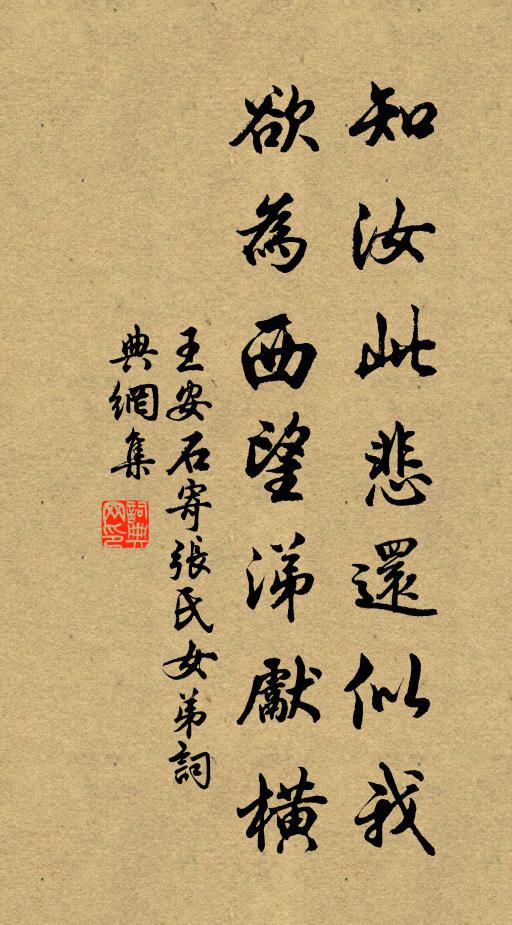 知汝此悲還似我
欲為西望涕獻橫
王安石寄張氏女弟詞
典網集
詞典
网印